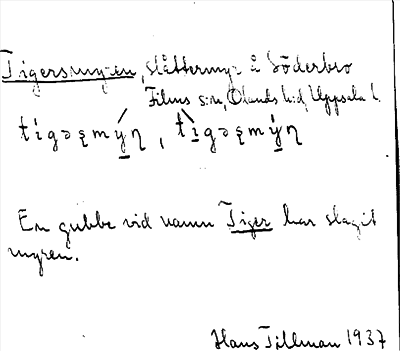 Tigersmyren, slåttermyr å Söderbro
Films s:n, Olands h:d, Uppsala l.
En gubbe vid namn Tiger har slagit
myren.
Hans Tillman 1937